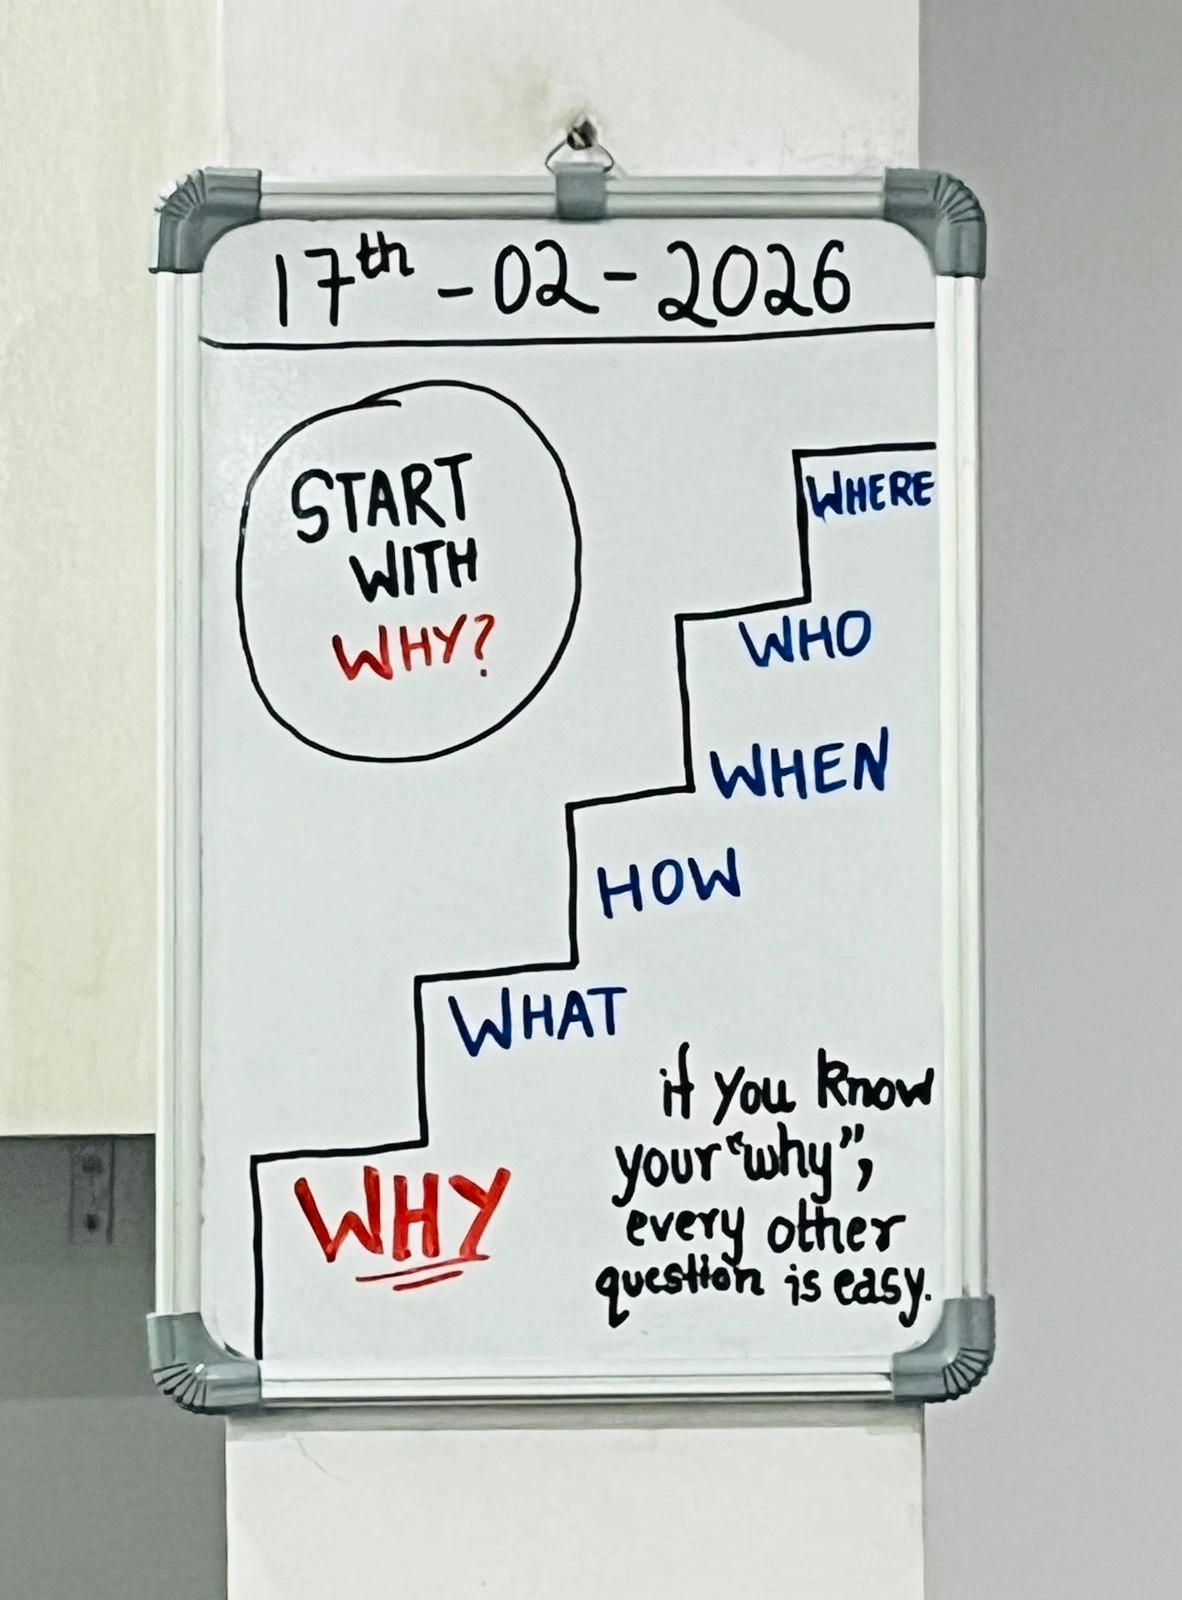 17th - 02 - 2026
START
WITH
WHY?
WHERE
WHO
WHEN
HOW
WHAT
WHY
if you know
your "why",
every other
question is easy.